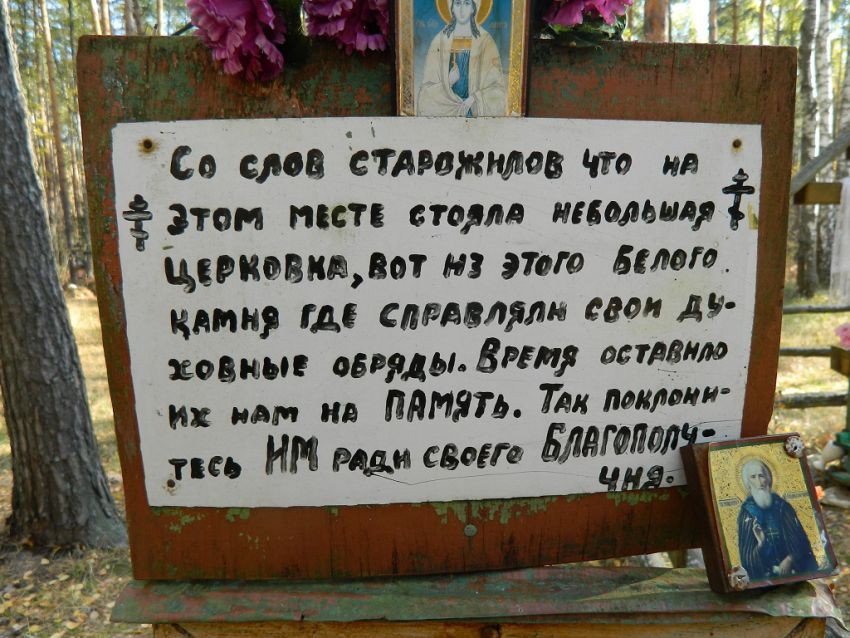 Со слов старожилов что на
этом месте стояла небольшая
церковка, вот из этого белого
камня где справляли свои ду-
ховные обряды. Время оставило
их нам на ПАМЯТЬ. Так поклони-
тесь ИМ ради своего БЛАГОПОЛУ-
ЧИЯ.